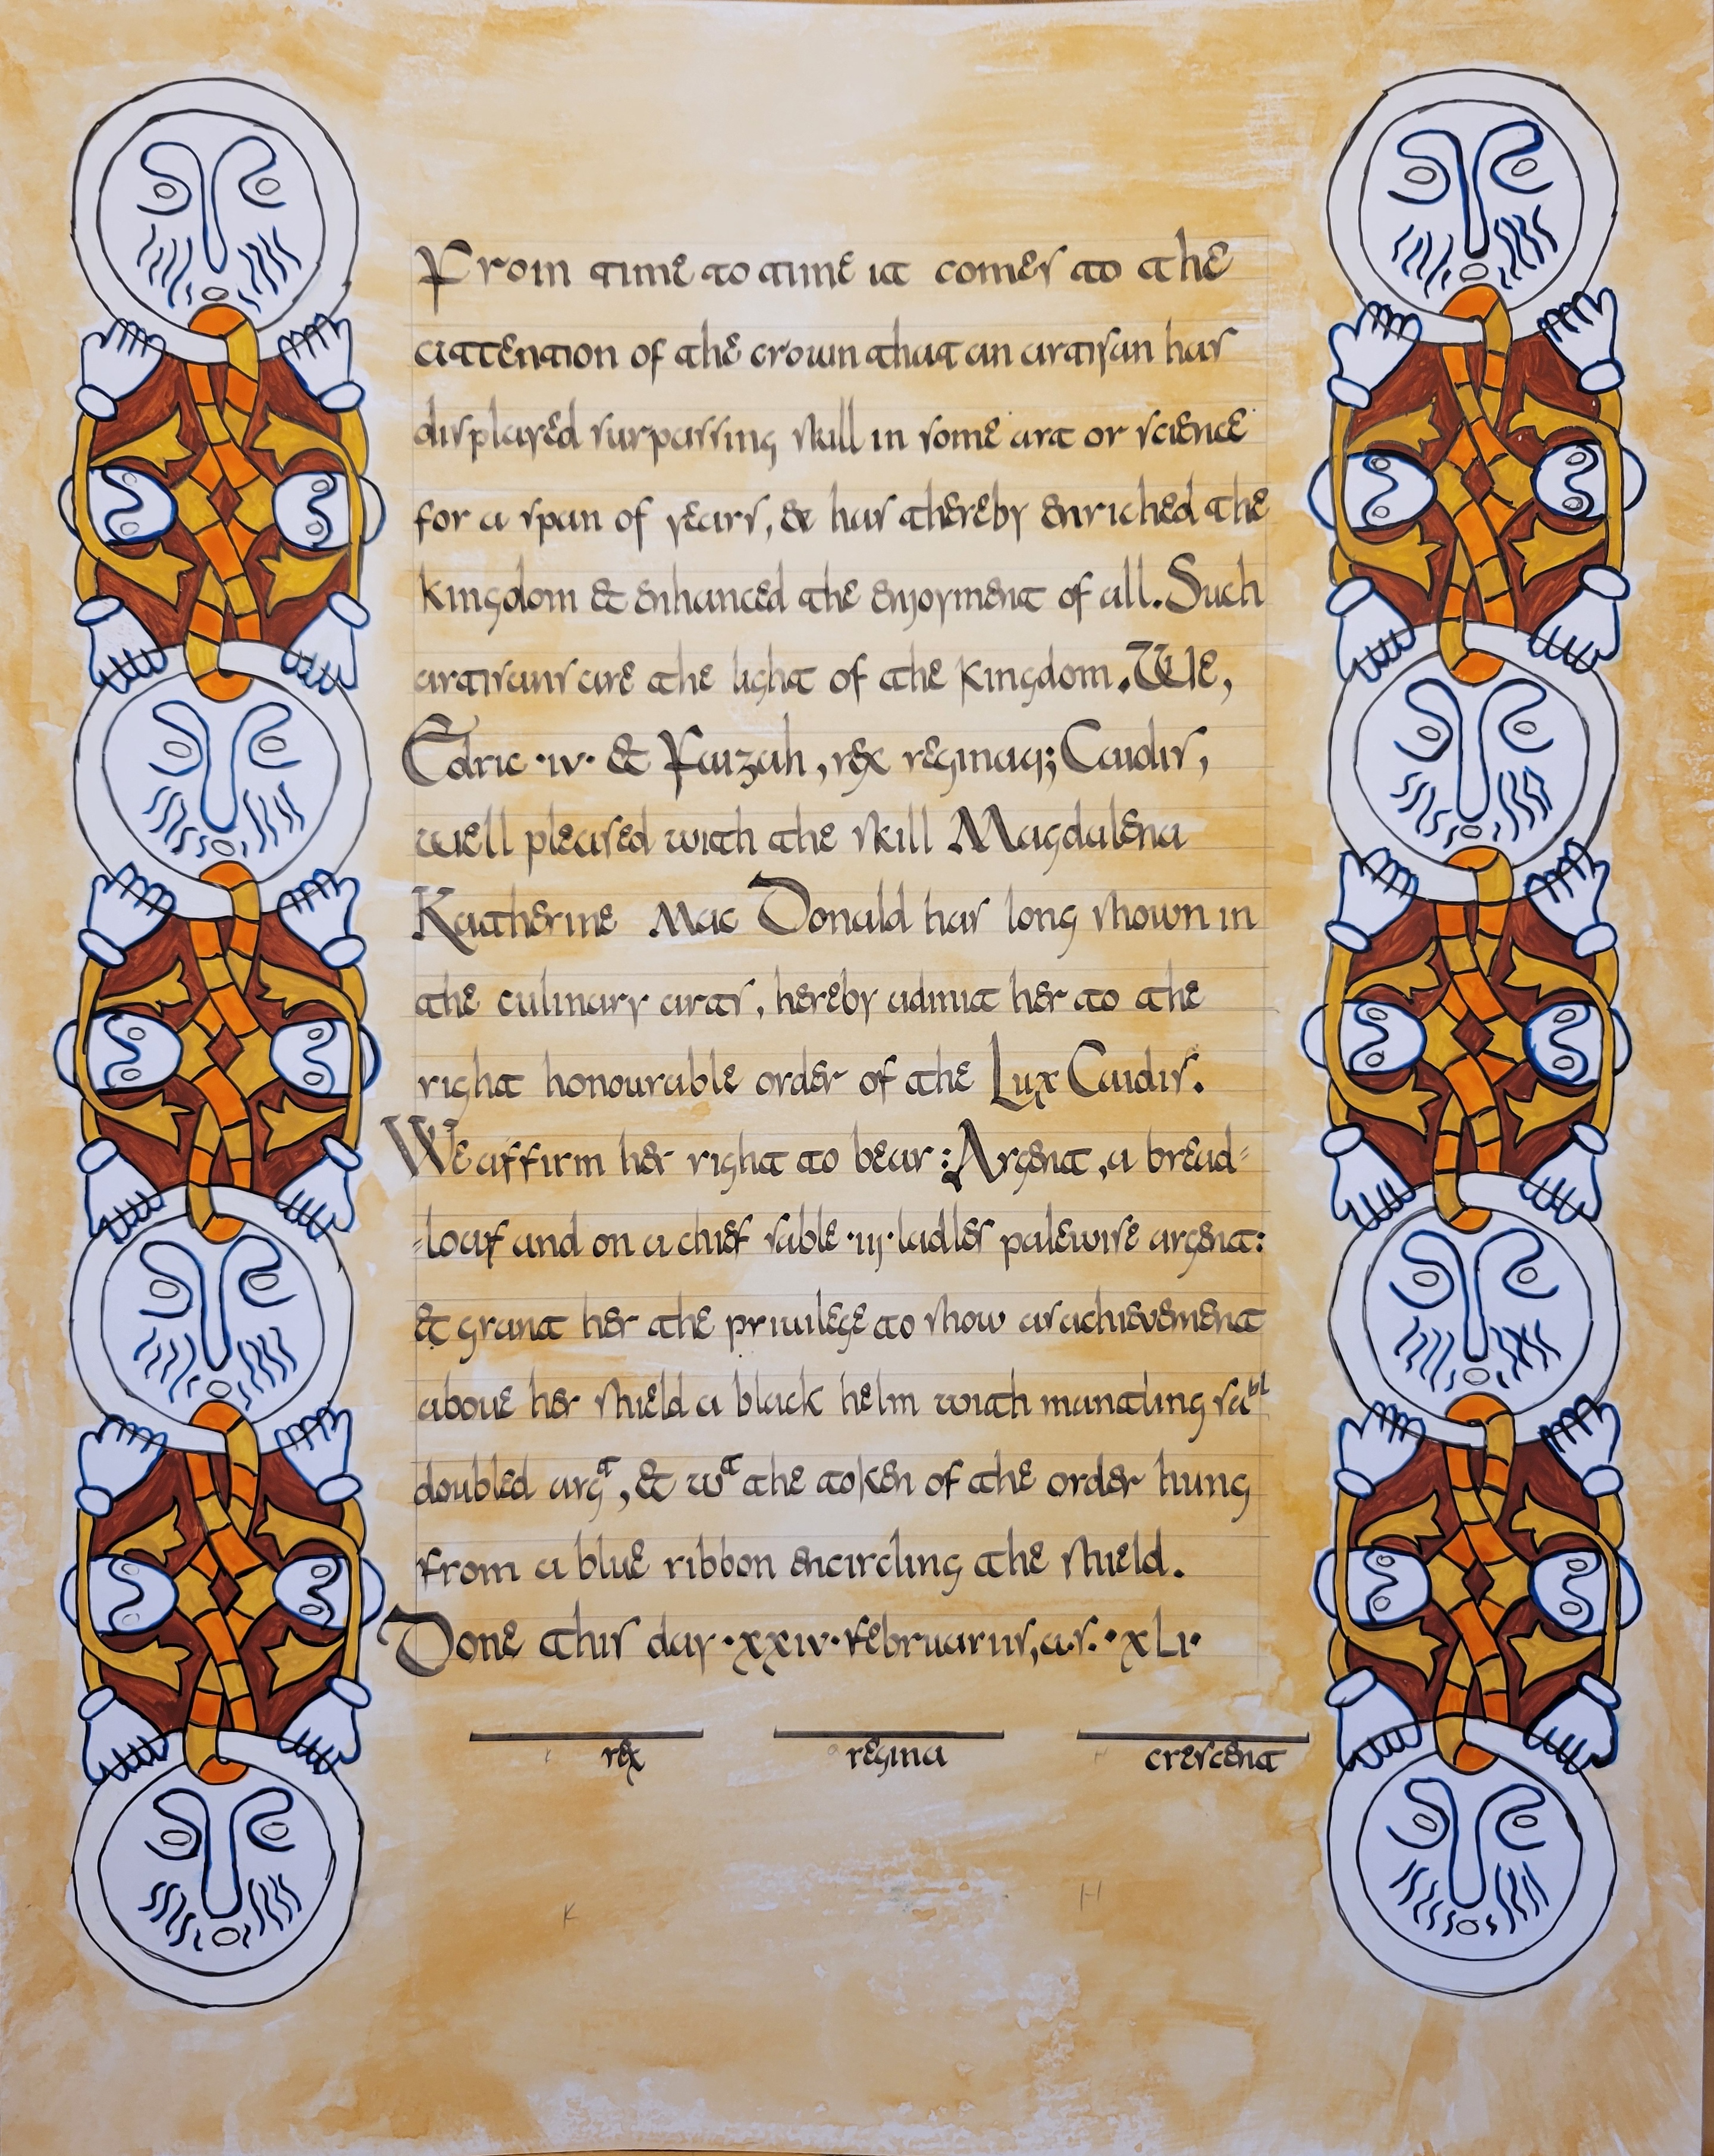 From time to time it comes to the
attention of the crown that an artisan has
displayed surpassing skill in some art or science
for a span of years, & has thereby enriched the
kingdom & enhanced the enjoyment of all. Such
artisans are the light of the kingdom. We,
Edric ·iv· & Faizah, rex reginaq; Caidis,
well pleased with the skill Magdalena
Katherine Mac Donald has long shown in
the culinary arts, hereby admit her to the
right honourable order of the Lux Caidis.
We affirm her right to bear: Argent, a bread=
=loaf and on a chief sable ·iij· ladles palewise argent:
& grant her the privilege to show as achievement
above her shield a black helm with mantling sabl
doubled argt, & wt the token of the order hung
from a blue ribbon encircling the shield.
Done this day ·xxiv· februariis, a.s. ·xli·
rex regina crescent
K H